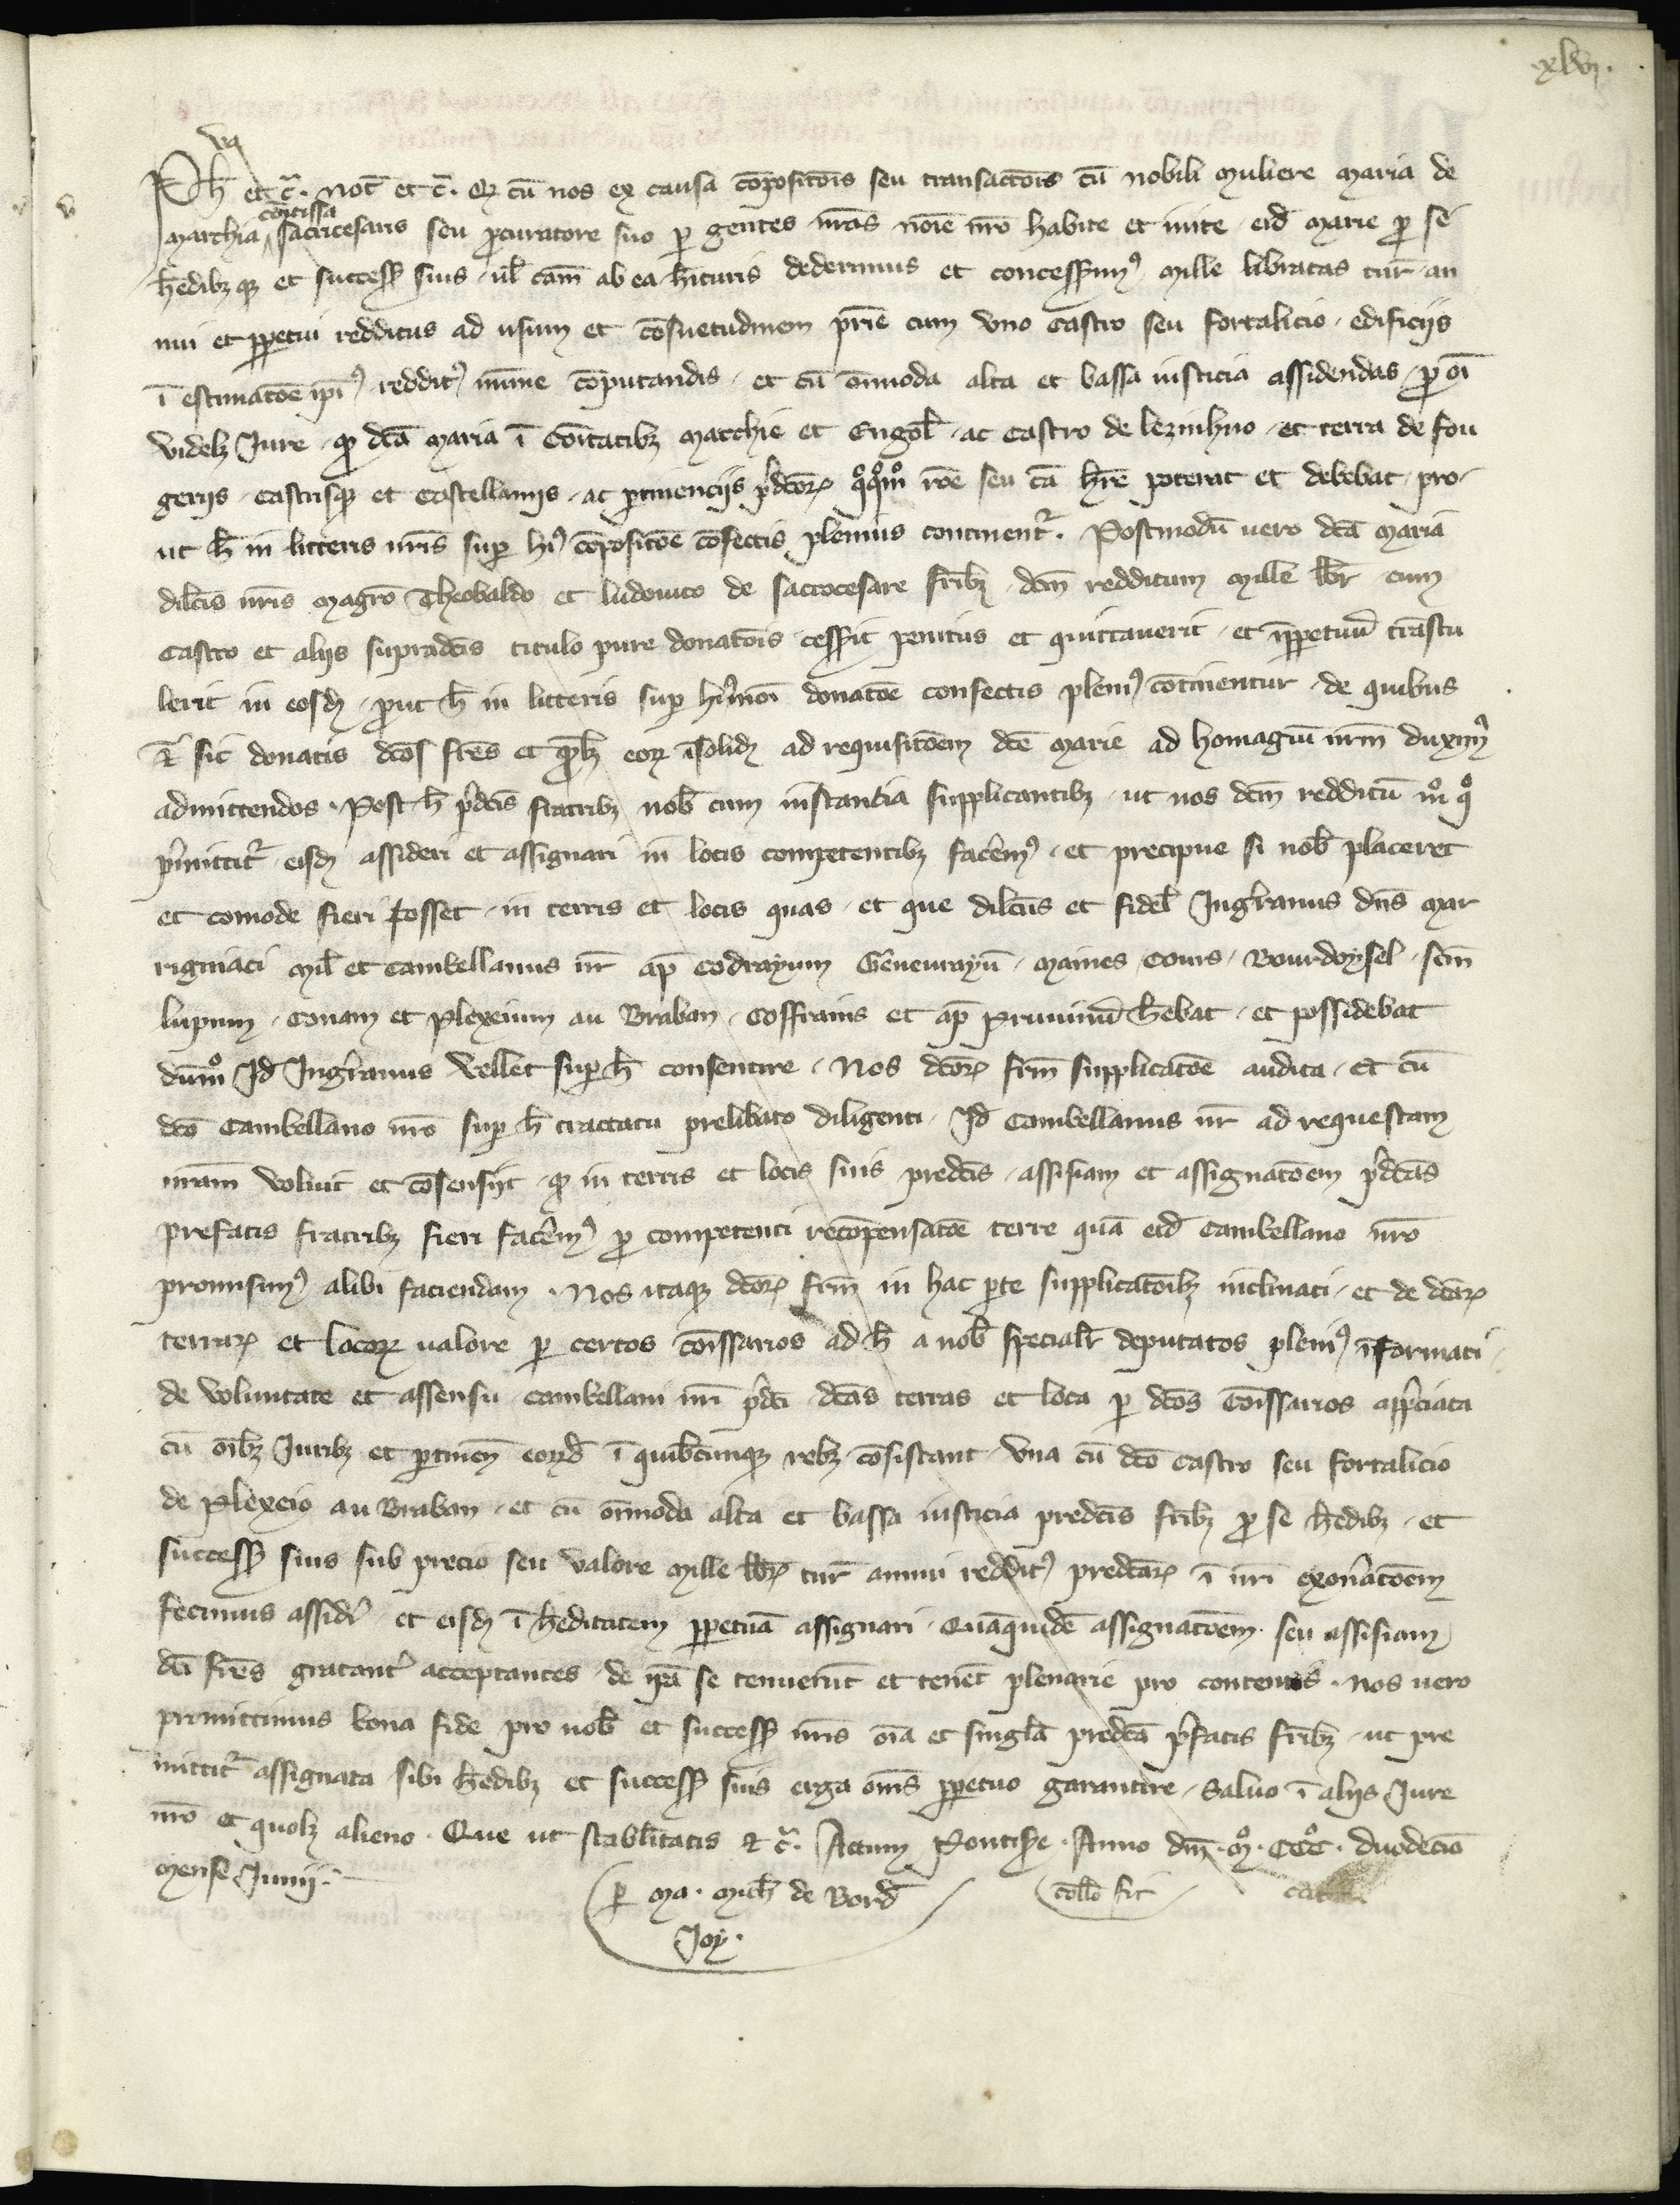 xlvi.
va
Ph̄ et c̄. not̄ et c̄. Qz cū nos ex causa cōpositōis seu transactōis cū nobili muliere Maria de
Marchia cōitissa sacricesaris seu p̄curatore suo p gentes nr̄as noīe nr̄o habite et inite eid̄ Marie p se
h̄edibz qz et success̄ suis ul̄ cām ab ea h̄ituris dederimus et concessim9 mille libratas tur̄ an
nui et pp̄etui redditus ad usum et cōsuetudinem pr̄ie cum uno castro seu fortalicio edificijs
ī estimatōe ip̄i9 reddit9 minime cōputandis et cū om̄imoda alta et bassa iusticia assidendas p oī
videlz Jure qz dc̄a Maria ī Comitatibz Marchie et Engol̄ ac castro de leziniħno et terra de fou
geriis castrisqz et castellaniis ac p̄tinenciis p̄dcōrꝫ qo͛qo͛m͛ rōe seu cā h̄re poterat et debebat pro
ut h̄ in litteris nr̄is sup hi9 cōpositōe cōfectis plenius continent͛. Postmodū uero dc̄a Maria
dilc̄is nr̄is magr̄o Theobaldo et ludovico de sacrocesare fr̄ibz dc̄m redditum mille lbr̄ cum
castro et aliis supradc̄is titulo pure donatōis cessit penitus et quittaverit et ipp̄etuū trāstu
lerit in eosdꝫ prout h̄ in litteris sup hi9moi donatōe confectis pleni9 cōtinentur de quibus
sic donatis dc̄os fr̄es et q̄lbꝫ eorꝫ īsolidꝫ ad requisitōem dc̄e Marie ad homagiū nr̄m duxim9
admittendos. Post h̄ p̄dc̄is fratribꝫ nob̄ cum instantia supplicantibꝫ ut nos dc̄m redditū m͛ q͛
p̄mittit͛ eisdꝫ assideri et assignari in locis competentibꝫ facem9 et precipue si nob̄ placeret
et comode fieri posset in terris et locis quas et que dilc̄us et fidel̄ Ingr̄anus dn̄s Mar
rigniaci mil̄ et cambellanus nr̄ ap̄ Codrayum Genevrayū Maines Cours Bourdoysel sc̄m
lupum Conam et Plexeium au Braban Coffrains et ap̄ Pruuinū h̄ebat et possidebat
dūm͛ Id̄ Ingr̄anus vellet sup h̄ consentire Nos dcōrꝫ fr̄m supplicatōe audita et cū
dc̄o Cambellano nr̄o sup h̄ tractatu prelibato diligenti Id̄ Cambellanus nr̄ ad requestam
nr̄am voluit et cōsensijt qz in terris et locis suis predc̄is assisiam et assignatōem p̄dc̄as
prefatis fratribꝫ fieri facem9 p competenti recōpensatōe terre quā eid̄ Cambellano nr̄o
promisim9 alibi faciendam. Nos itaqz dcōrꝫ fr̄m in hac p̄te supplicatōibꝫ inclinati et de dcārꝫ
terrarꝫ et locorꝫ valore p certos cōissarios ad h̄ a nob̄ specialr̄ deputatos pleni9 īformati
de voluntate et assensu cambellani nr̄i p̄dc̄i dc̄as terras et loca p dc̄os cōissarios app̄ciata
cū oībꝫ Juribꝫ et p̄tinen̄ eorꝫd̄ ī quibꝫcunqz rebꝫ cōsistant una cū dc̄o castro seu fortalicio
de Plexeio au Braban et cū om̄imoda alta et bassa iusticia predc̄is fr̄ibꝫ p se h̄edibꝫ et
success̄ suis sub precio seu valore mille lbr̄ꝫ tur̄ annui reddit9 predcārꝫ ī nr̄i exoneratōem
fecimus assid͛i et eisdꝫ ī h̄editatem pp̄etuā assignari. Quāquidē assignatōem seu assisiam
dc̄i fr̄es gratant͛ acceptantes de ip̄a se tenuerūt et tenēt plenarie pro contentis. Nos vero
promittimus bona fide pro nob̄ et success̄ nr̄is oīa et singl̄a predc̄a p̄fatis fr̄ibꝫ ut pre
mittit͛ assignata sibi h̄edibꝫ et success̄ suis erga om̄s pp̄etuo garantire. Salvo ī aliis Jure
nr̄o et quolꝫ alieno. Que ut stabl̄itatis et c̄. Actum Pontisꝫe. Anno dn̄i M͛. CCC͛. duodecīo
mense Junij.
p ma. Mich̄ de Bord̄
Joy.
coll̄o fit